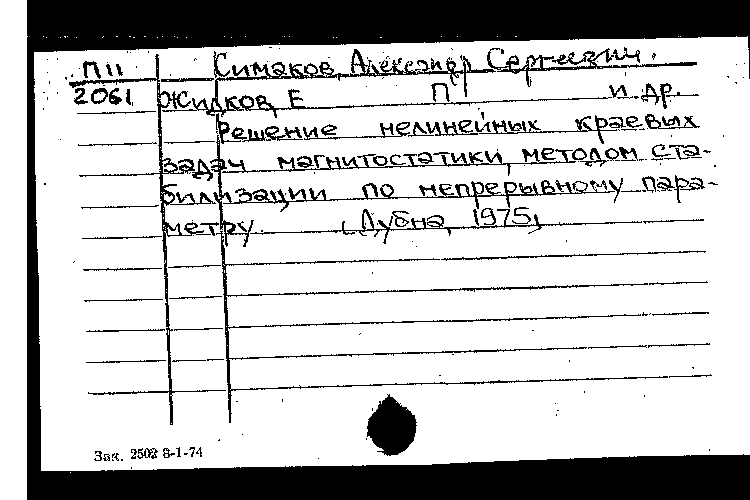 П11 Симаков, Александр Сергеевич.
2061 Жидков, Е П и др.
Решение нелинейных краевых
задач магнитостатики методом ста-
билизации по непрерывному пара-
метру. [Дубна, 1975]
Зак. 2502 8-1-74